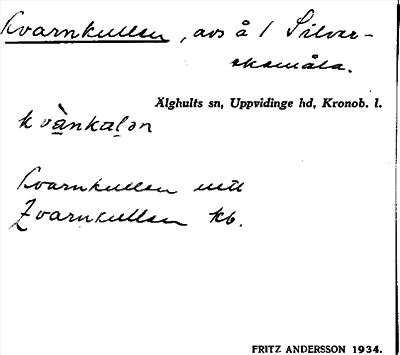 Kvarnkullen, avs å 1 Silver-
skamåla.
Älghults sn, Uppvidinge hd, Kronob. l.
kvànkaḷən
Kvarnkullen
Qvarnkullen kb.
FRITZ ANDERSSON 1934.